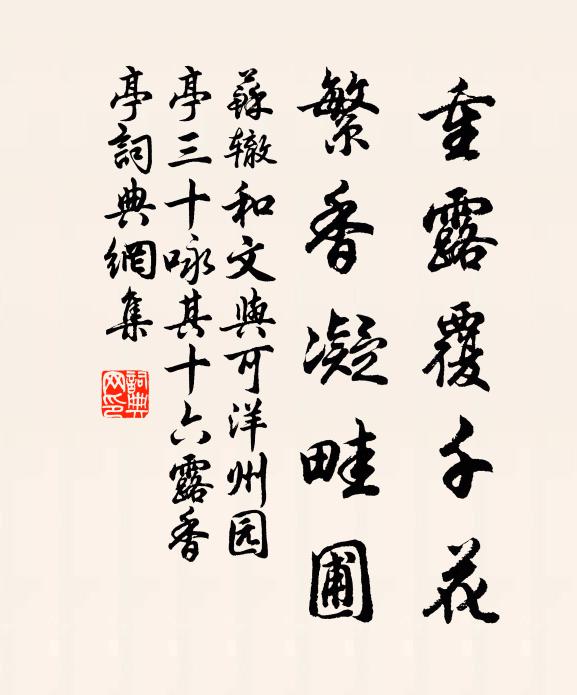 重露覆千花
繁香凝畦圃
蘇辙和文與可洋州园
亭三十咏其十六露香
亭詞典網集
詞典网印